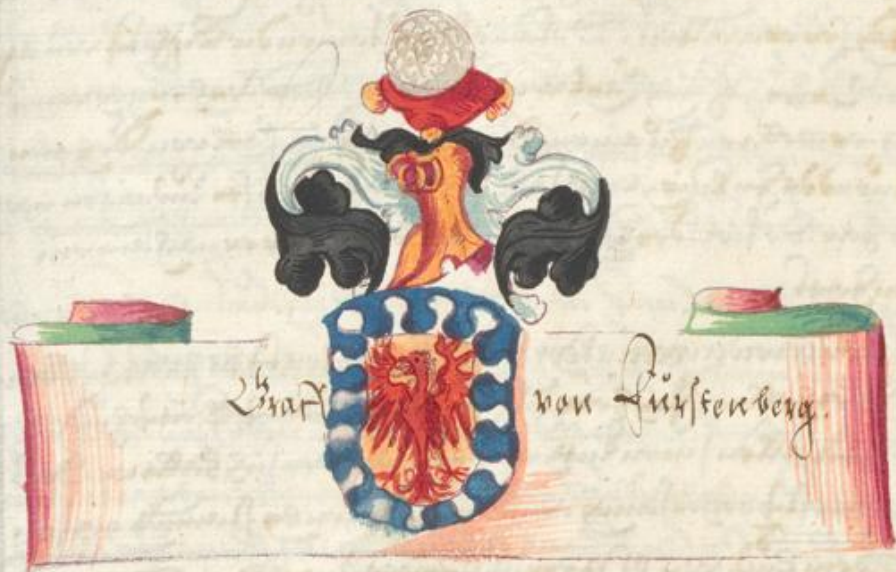 Graff von Fürstenberg.